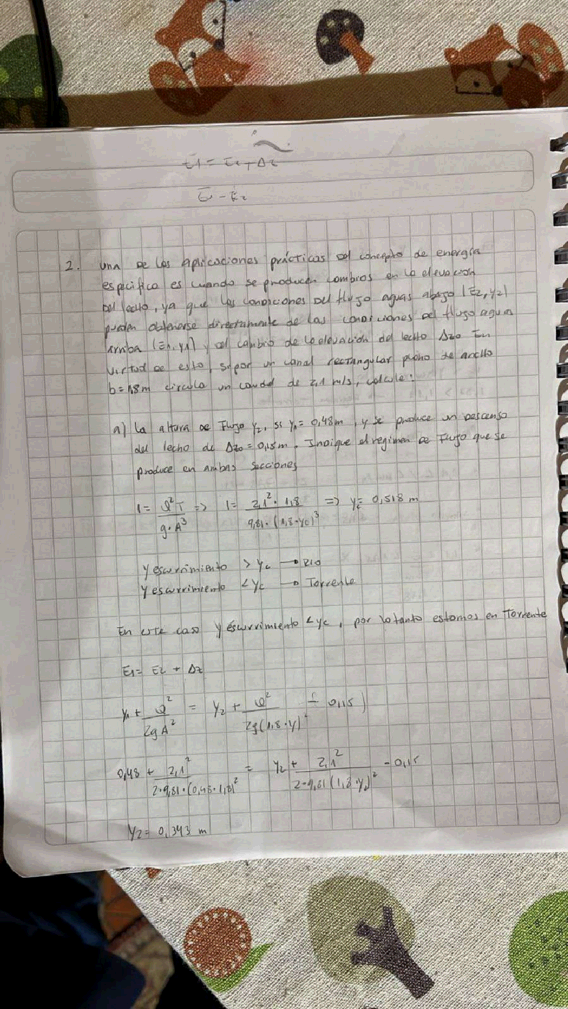 E1 = E2 + Δz
E - E2
2. una de las Aplicaciones prácticas del concepto de energía
específica es cuando se producen cambios en la elevación
del lecho, ya que las condiciones del flujo aguas abajo (E2, y2)
pueden obtenerse directamente de las condiciones del flujo aguas
arriba (E1, y1) y el cambio de la elevación del lecho Δzo. En
virtud de esto, supor un canal rectangular de ancho
b = 1,8 m circula un caudal de 2,1 m/s, calcule:
a) La altura de Flujo y2, si y1 = 0,48 m, y se produce un descenso
del lecho de Δzo = 0,15 m. Indique el régimen de Flujo que se
produce en ambas secciones
1 = Q² T / g · A³ => 1 = 2,1² · 1,8 / 9,81 · (1,8 · yc)³ => yc = 0,518 m
y escurrimiento > yc → Rio
y escurrimiento < yc → Torrente
En este caso y escurrimiento < yc, por lo tanto estamos en Torrente
E1 = E2 + Δz
y1 + Q² / 2gA² = y2 + Q² / 2g(1,8 · y)² ± 0,15)
0,48 + 2,1² / 2 · 9,81 · (0,48 · 1,8)² = y2 + 2,1² / 2 · 9,81 (1,8 · y2)² - 0,15
y2 = 0,343 m